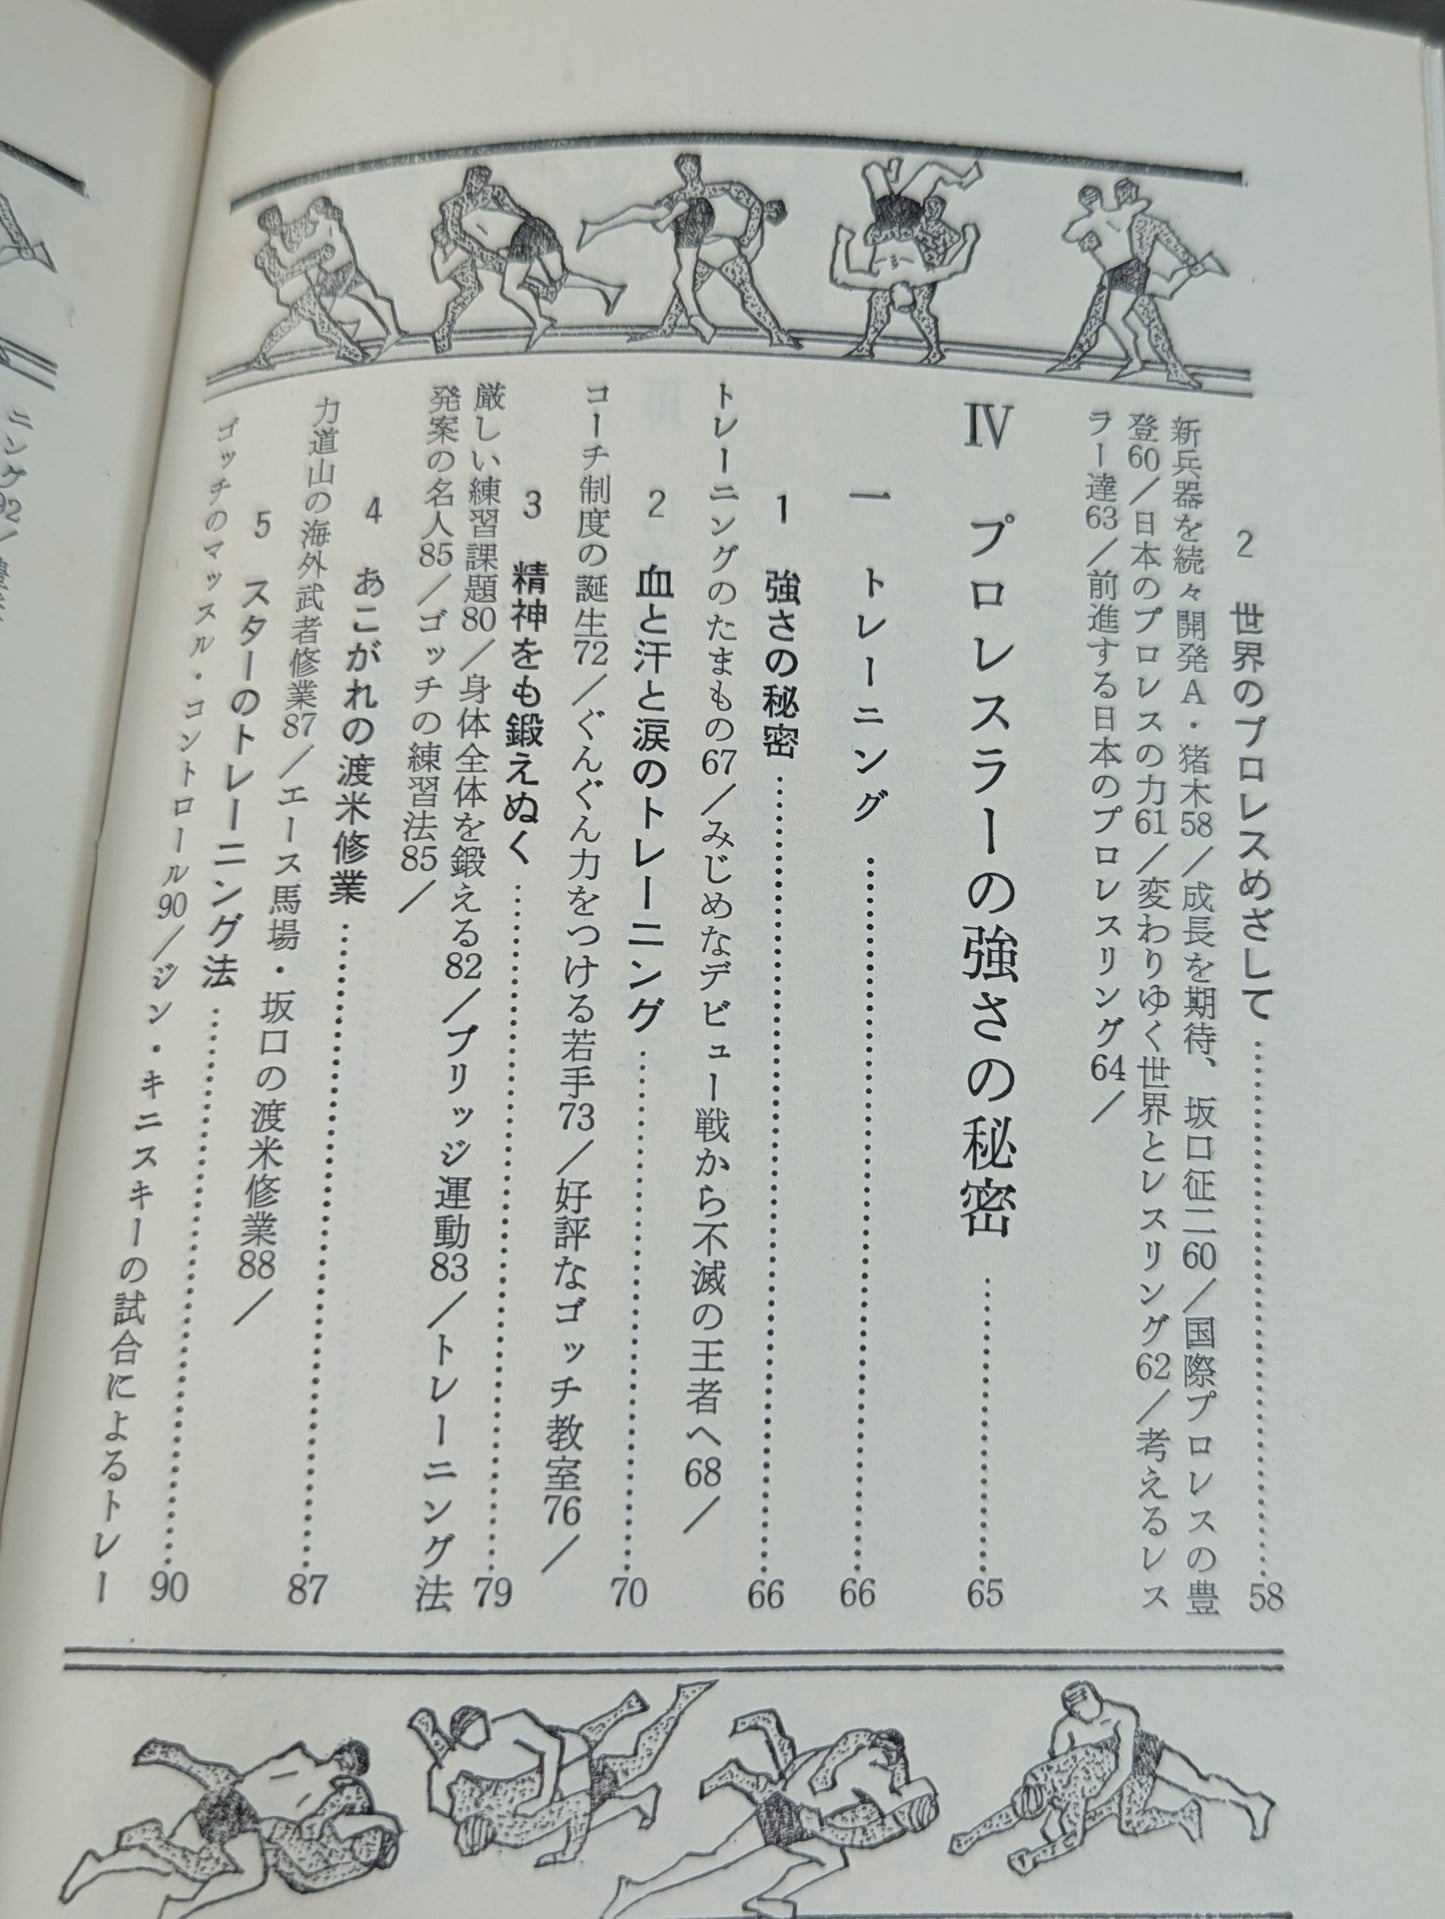 2　世界のプロレスめざして…………58
新兵器を続々開発A・猪木58／成長を期待、坂口征二60／国際プロレスの豊
登60／日本のプロレスの力61／変わりゆく世界とレスリング62／考えるレス
ラー達63／前進する日本のプロレスリング64／
Ⅳ　プロレスラーの強さの秘密…………65
一　トレーニング…………66
1　強さの秘密…………66
トレーニングのたまもの67／みじめなデビュー戦から不滅の王者へ68／
2　血と汗と涙のトレーニング…………70
コーチ制度の誕生72／ぐんぐん力をつける若手73／好評なゴッチ教室76／
3　精神をも鍛えぬく…………79
厳しい練習課題80／身体全体を鍛える82／ブリッジ運動83／トレーニング法
発案の名人85／ゴッチの練習法85／
4　あこがれの渡米修業…………87
力道山の海外武者修業87／エース馬場・坂口の渡米修業88／
5　スターのトレーニング法…………90
ゴッチのマッスル・コントロール90／ジン・キニスキーの試合によるトレー
ニング92／